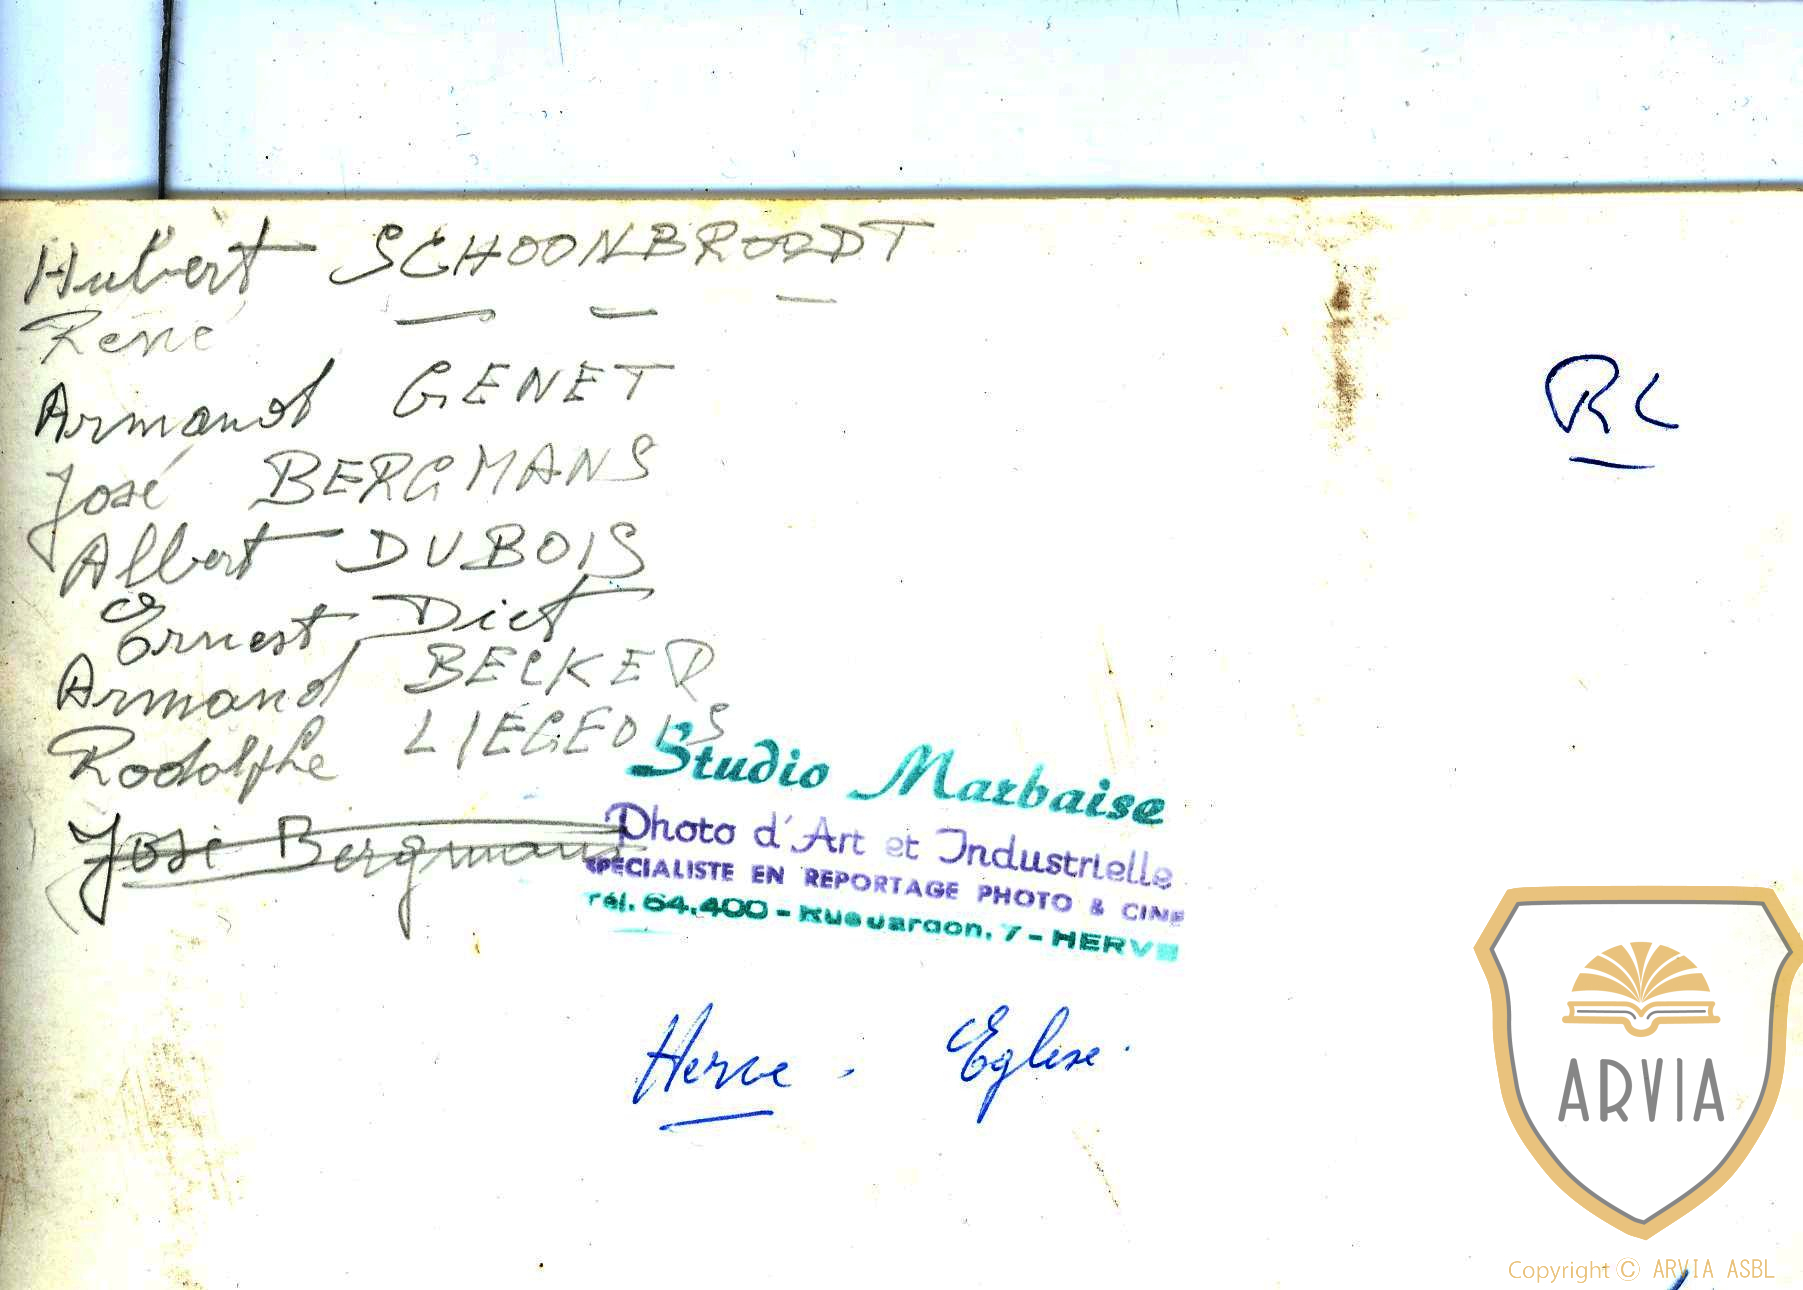 Hubert SCHOONBROODT
René — — —
Armand GENET
José BERGMANS
Albert DUBOIS
Ernest Dict
Armand BECKER
Rodolphe LIEGEOIS
José Bergmans
RL
Studio Marbaise
Photo d'Art et Industrielle
SPECIALISTE EN REPORTAGE PHOTO & CINE
Tél. 64.400 - Rue Jardon, 7 - HERVE
Herve - Eglise.
ARVIA
Copyright © ARVIA ASBL